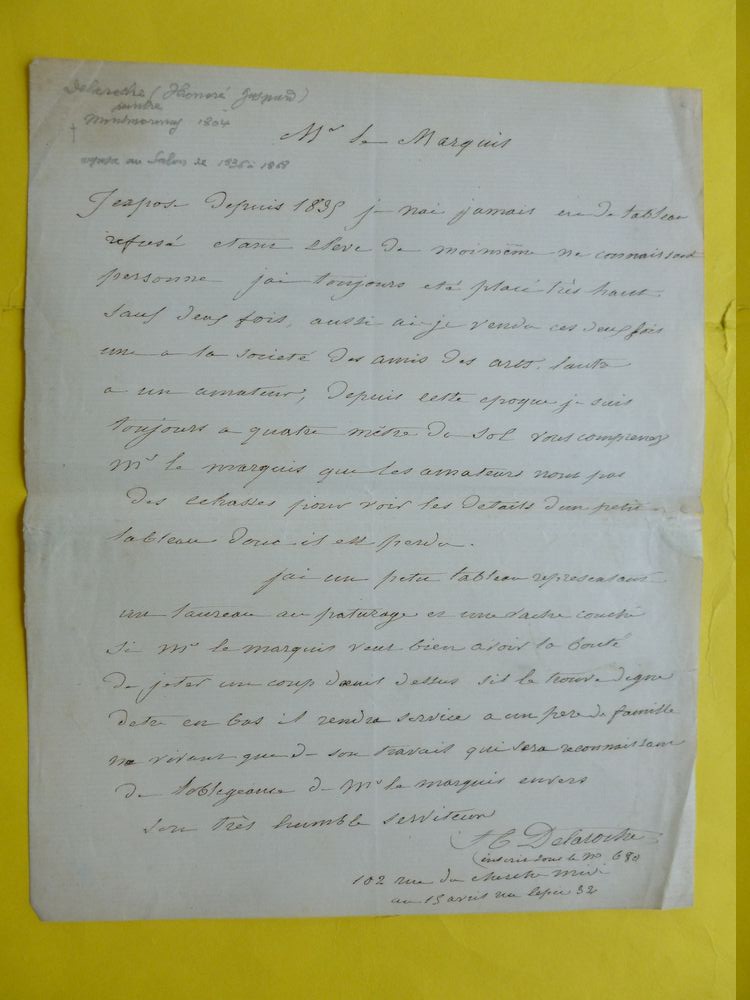 Delaroche (Honoré Gaspard)
peintre
Montmorency 1804
†
exposa au Salon de 1835 à 1868
Mr le Marquis
J'expose depuis 1835 je nai jamais eu de tableau
refusé etant Eleve de moimême ne connaissant
personne jai toujours eté placé très haut
sauf deux fois, aussi ai-je vendu ces deux fois
une a la société des amis des arts. lautre
a un amateur, depuis cette epoque je suis
toujours a quatre mètre du sol vous comprenez
Mr le marquis que les amateurs nont pas
des echasses pour voir les details dun petit
tableau donc il est perdu.
jai un petit tableau representant
un taureau au paturage et une vache couché
si Mr le marquis veut bien avoir la bonté
de jeter un coup dœuil dessus sil le trouve digne
detre en bas il rendra service a un pere de famille
ne vivant que de son travail qui sera reconnaissant
de loblegeance de Mr le marquis envers
son très humble serviteur
H Delaroche
inscrit sous le no 680
102 rue du cherche midi
au 15 avril rue 32